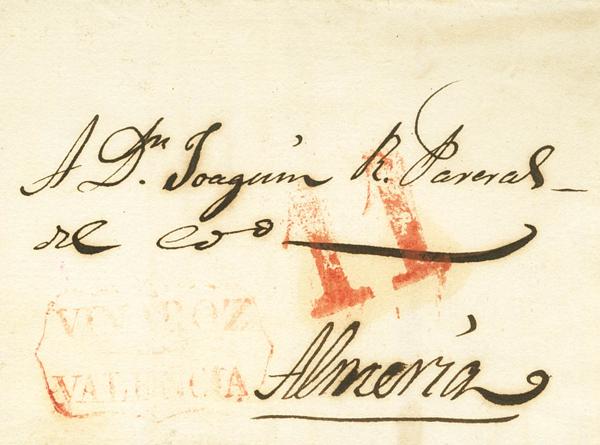 A Dn. Joaquin R. Pareras
del Co
11
VINAROZ
VALENCIA
Almería